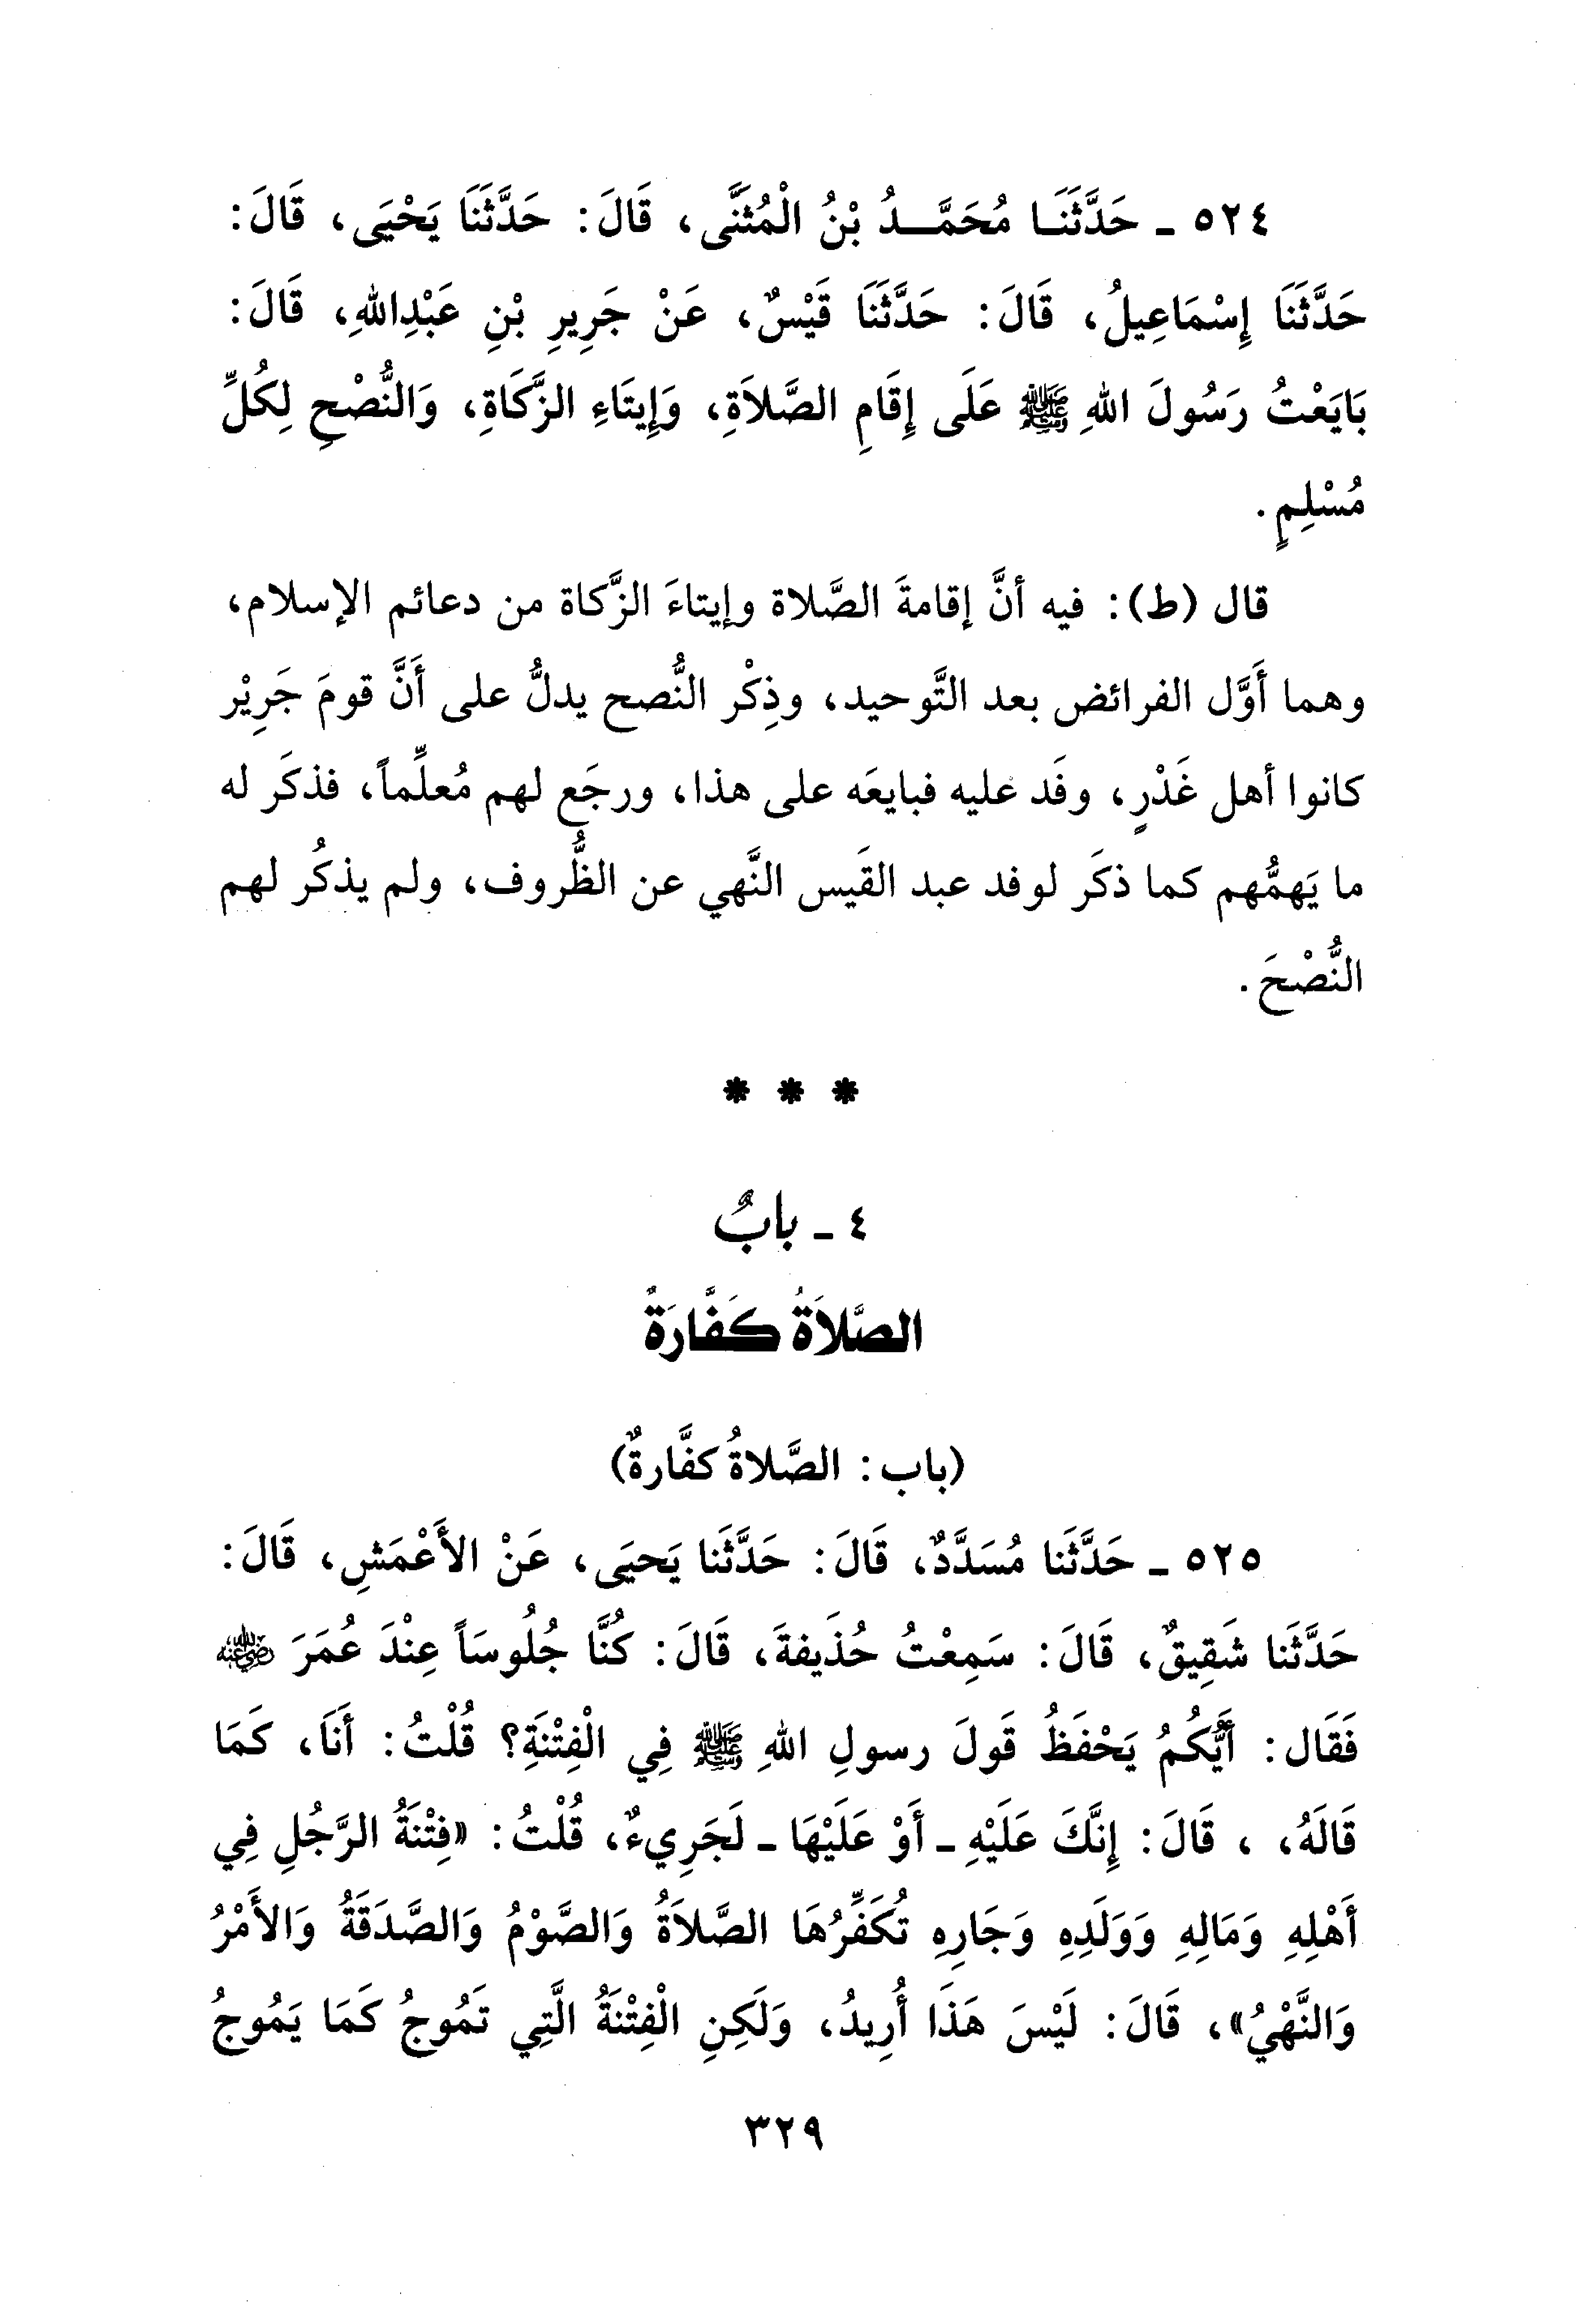 ٥٢٤ - حَدَّثَنَا مُحَمَّدُ بْنُ الْمُثَنَّى، قَالَ: حَدَّثَنَا يَحْيَى، قَالَ:
حَدَّثَنَا إِسْمَاعِيلُ، قَالَ: حَدَّثَنَا قَيْسٌ، عَنْ جَرِيرِ بْنِ عَبْدِاللهِ، قَالَ:
بَايَعْتُ رَسُولَ اللهِ ﷺ عَلَى إِقَامِ الصَّلاَةِ، وَإِيتَاءِ الزَّكَاةِ، وَالنُّصْحِ لِكُلِّ
مُسْلِمٍ.
قال (ط): فيه أنَّ إقامةَ الصَّلاة وإيتاءَ الزَّكاة من دعائم الإسلام،
وهما أَوَّل الفرائض بعد التَّوحيد، وذِكْر النُّصح يدلُّ على أَنَّ قومَ جَرِيْر
كانوا أهل غَدْرٍ، وفَد عليه فبايعَه على هذا، ورجَع لهم مُعلِّماً، فذكَر له
ما يَهمُّهم كما ذكَر لوفد عبد القَيس النَّهي عن الظُّروف، ولم يذكُر لهم
النُّصْحَ.
* * *
٤ - بابٌ
الصَّلاَةُ كَفَّارَةٌ
(باب: الصَّلاةُ كفَّارةٌ)
٥٢٥ - حَدَّثَنا مُسَدَّدٌ، قَالَ: حَدَّثَنا يَحيَى، عَنْ الأَعْمَشِ، قَالَ:
حَدَّثَنا شَقِيقٌ، قَالَ: سَمِعْتُ حُذَيفةَ، قَالَ: كُنَّا جُلُوسَاً عِنْدَ عُمَرَ رضي الله عنه
فَقَال: أَيُّكُمُ يَحْفَظُ قَولَ رسولِ اللهِ ﷺ فِي الْفِتْنَةِ؟ قُلْتُ: أَنَا، كَمَا
قَالَهُ، ، قَالَ: إِنَّكَ عَلَيْهِ - أَوْ عَلَيْهَا - لَجَرِيءٌ، قُلْتُ: «فِتْنَةُ الرَّجُلِ فِي
أَهْلِهِ وَمَالِهِ وَوَلَدِهِ وَجَارِهِ تُكَفِّرُهَا الصَّلاَةُ وَالصَّوْمُ وَالصَّدَقَةُ وَالأَمْرُ
وَالنَّهْيُ»، قَالَ: لَيْسَ هَذَا أُرِيدُ، وَلَكِنِ الْفِتْنَةُ الَّتِي تَمُوجُ كَمَا يَمُوجُ
٣٢٩